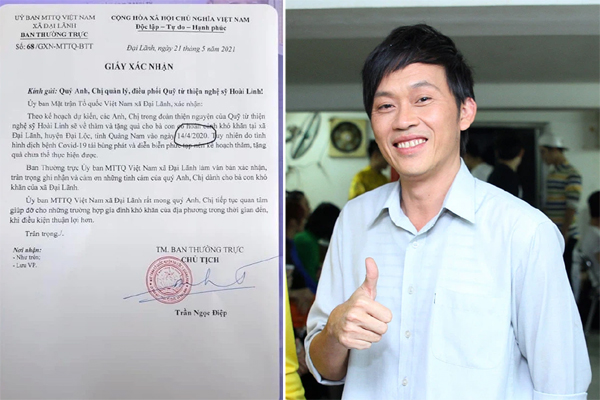 ỦY BAN MTTQ VIỆT NAM
XÃ ĐẠI LÃNH
BAN THƯỜNG TRỰC
Số: 68/GXN-MTTQ-BTT
CỘNG HÒA XÃ HỘI CHỦ NGHĨA VIỆT NAM
Độc lập – Tự do – Hạnh phúc
Đại Lãnh, ngày 21 tháng 5 năm 2021
GIẤY XÁC NHẬN
Kính gửi: Quý Anh, Chị quản lý, điều phối Quỹ từ thiện nghệ sỹ Hoài Linh!
Ủy ban Mặt trận Tổ quốc Việt Nam xã Đại Lãnh, xác nhận:
Theo kế hoạch dự kiến, các Anh, Chị trong đoàn thiện nguyện của Quỹ từ thiện
nghệ sỹ Hoài Linh sẽ về thăm và tặng quà cho bà con có hoàn cảnh khó khăn tại xã
Đại Lãnh, huyện Đại Lộc, tỉnh Quảng Nam vào ngày 14/4/2020. Tuy nhiên do tình
hình dịch bệnh Covid-19 tái bùng phát và diễn biến phức tạp nên kế hoạch thăm, tặng
quà chưa thể thực hiện được.
Ban Thường trực Ủy ban MTTQ Việt Nam xã Đại Lãnh làm văn bản xác nhận,
trân trọng ghi nhận và cảm ơn những tình cảm của quý Anh, Chị dành cho bà con khó
khăn của xã Đại Lãnh.
Ủy ban MTTQ Việt Nam xã Đại Lãnh rất mong quý Anh, Chị tiếp tục quan tâm
giúp đỡ cho những trường hợp gia đình khó khăn của địa phương trong thời gian đến,
khi điều kiện thuận lợi hơn.
Trân trọng./.
Nơi nhận:
- Như trên;
- Lưu VP.
TM. BAN THƯỜNG TRỰC
CHỦ TỊCH
Trần Ngọc Điệp